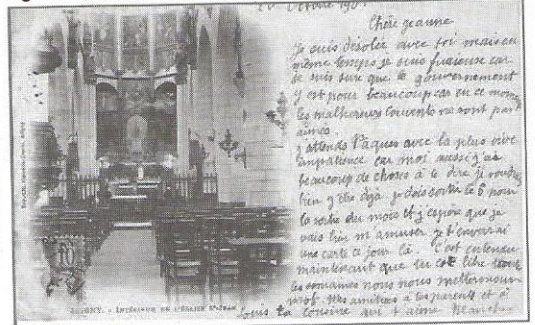 Octobre 190
Chère Jeanne
Je suis désolée avec toi mais en
même temps je suis furieuse car
je suis sure que le gouvernement
y est pour beaucoup car en ce moment
les malheureux couvents ne sont pas
aimés.
J'attends Pâques avec la plus vive
impatience car moi aussi j'ai
beaucoup de choses à te dire je voudrais
bien y être déjà. je dois sortir le 6 pour
la sortie du mois et j'espère que je
vais bien m'amuser je t'enverrai
une carte ce jour là. C'est entendu
maintenant que tu es libre tous
les semaines nous nous mettrons un
mot. Mes amitiés à tes parents et à
Louis ta cousine qui t'aime
- INTÉRIEUR DE L'ÉGLISE St-JEAN